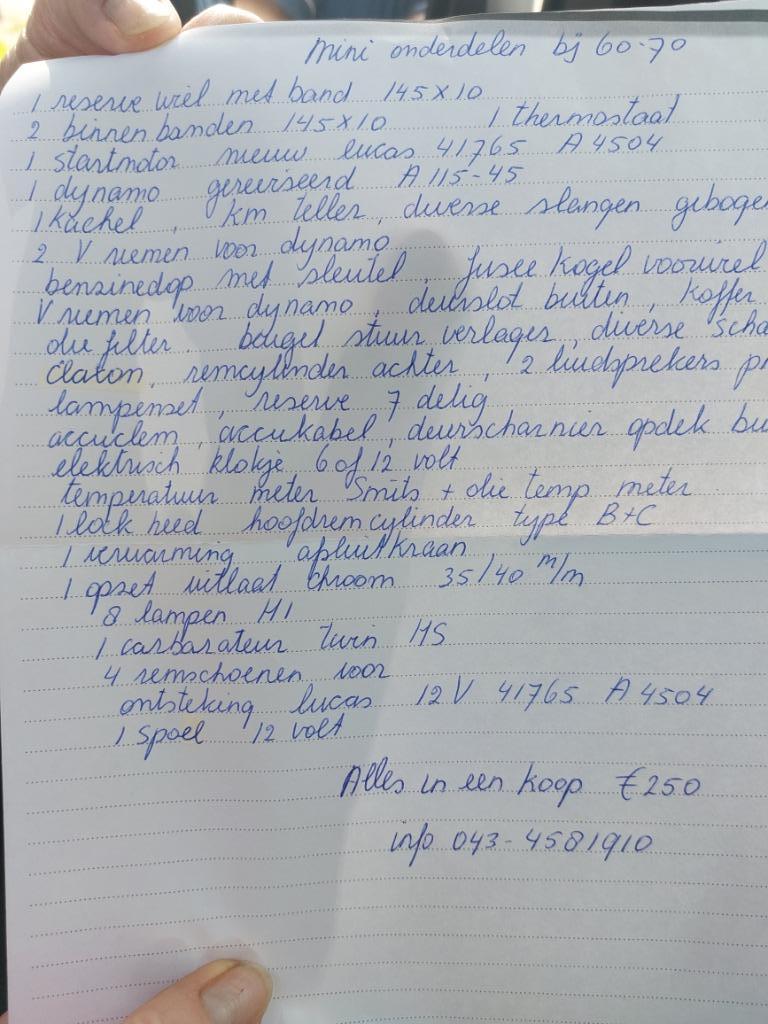 Mini onderdelen bj 60-70
1 reserve wiel met band 145x10
2 binnenbanden 145x10 1 thermostaat
1 startmotor nieuw lucas 41765 A 4504
1 dynamo gereviseerd A 115-45
1 Kachel, km teller, diverse slangen gebogen
2 V riemen voor dynamo
benzinedop met sleutel, fusee kogel voorwiel
V riemen voor dynamo, deurslot buiten, koffer
olie filter. beugel stuur verlager, diverse scha
claton, remcylinder achter, 2 luidsprekers
lampenset, reserve 7 delig
accuclem, accukabel, deurscharnier opdek bu
elektrisch klokje 6 of 12 volt
temperatuur meter Smits + olie temp meter
1 lock heed hoofdremcylinder type B+C
1 verwarming afsluitkraan
1 opzet uitlaat chroom 35/40 m/m
8 lampen H1
1 carbarateur twin HS
4 remschoenen voor
ontsteking lucas 12V 41765 A 4504
1 spoel 12 volt
Alles in een koop € 250
info 043-4581910